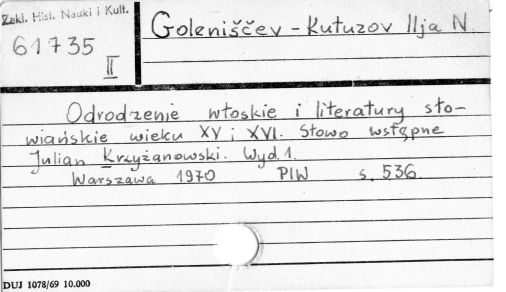 Zakł. Hist. Nauki i Kult.
61735
II
Goleniščev-Kutuzov Ilja N.
Odrodzenie włoskie i literatury sło-
wiańskie wieku XV i XVI. Słowo wstępne
Julian Krzyżanowski. Wyd. 1.
Warszawa 1970 PIW s. 536.
DUJ 1078/69 10.000